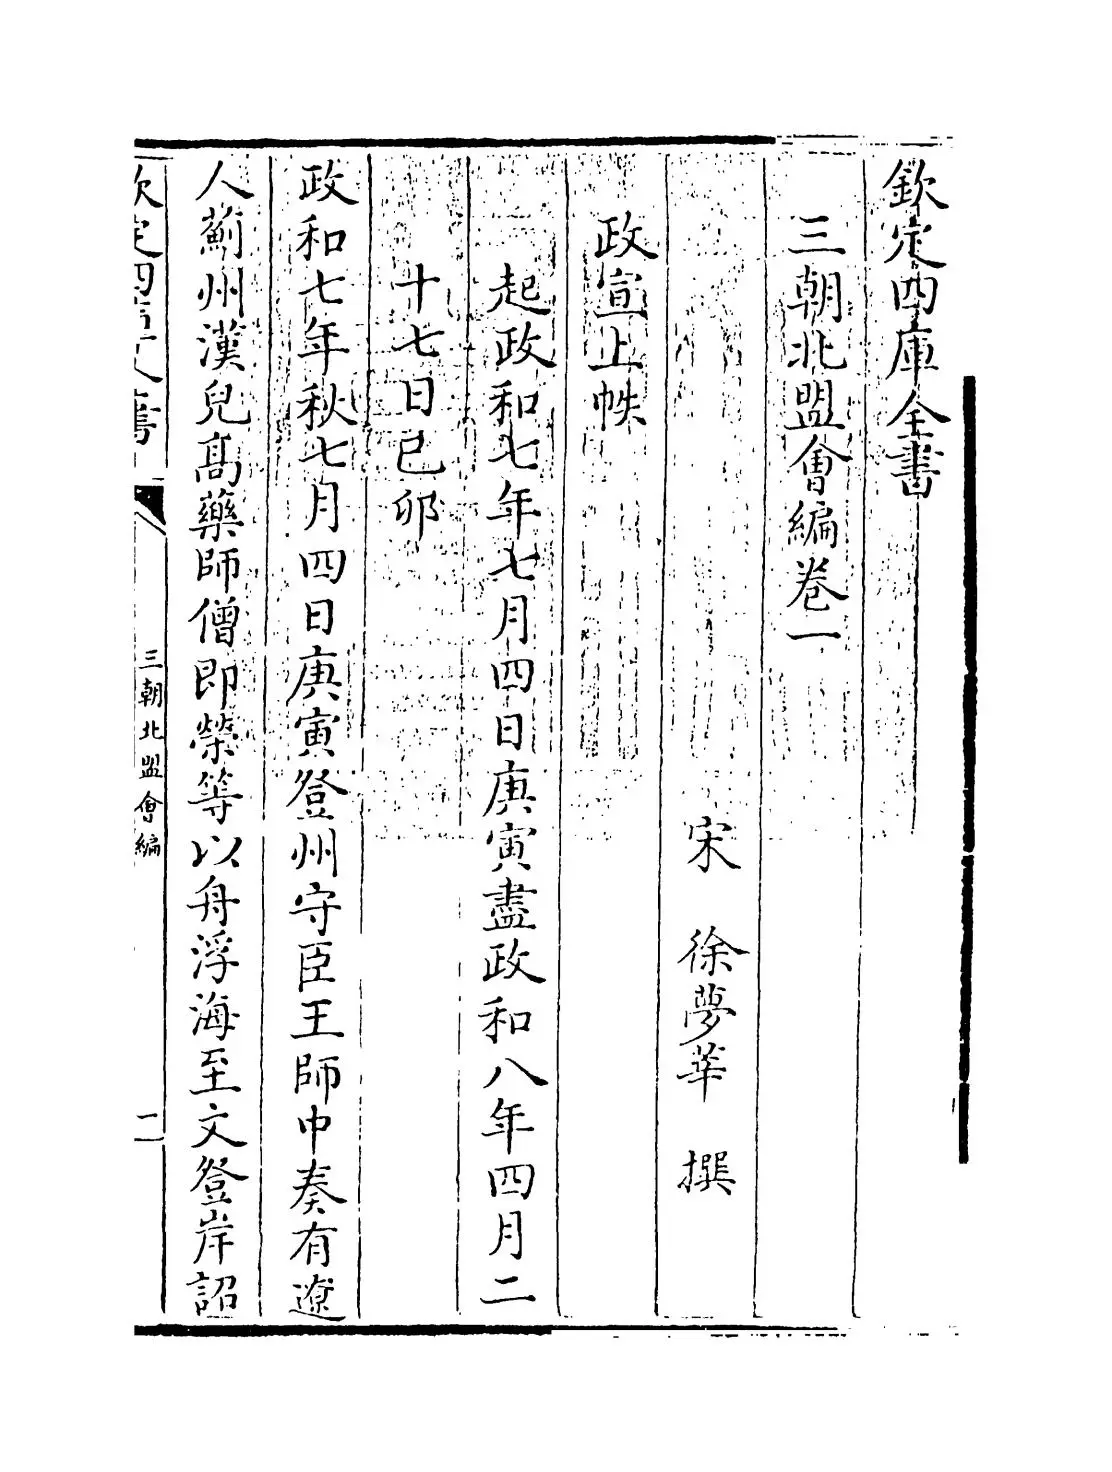 欽定四庫全書
三朝北盟會編卷一
宋 徐夢莘 撰
政宣上帙
起政和七年七月四日庚寅盡政和八年四月二
十七日己卯
政和七年秋七月四日庚寅登州守臣王師中奏有遼
人薊州漢兒髙藥師僧即榮等以舟浮海至文登岸詔
欽定四庫全書
三朝北盟會編
一